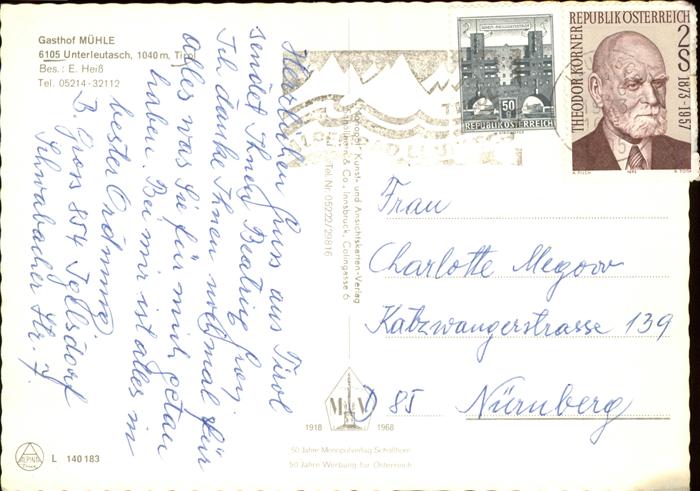 Gasthof MÜHLE
6105 Unterleutasch, 1040 m, Tirol
Bes.: E. Heiß
Tel. 05214-32112
Herzlichen Gruss aus Tirol
sendet Ihnen Beatrix Gros
Ich danke Ihnen nochmal für
alles was Sie für mich getan
haben. Bei mir ist alles in
bester Ordnung
B. Gros 854
Schwabacher Str. 7
L 140 183
Monopol-, Kunst- und Ansichtskarten-Verlag
Schöllhorn & Co., Innsbruck, Colingasse 6
Tel. Nr. 05222/29816
1918 1968
50 Jahre Monopolverlag Schöllhorn
50 Jahre Werbung für Österreich
50
REPUBLIK ÖSTERREICH
REPUBLIK ÖSTERREICH
2 S
THEODOR KÖRNER
1873-1957
Frau
Charlotte Megow
Katzwangerstrasse 139
D 85 Nürnberg